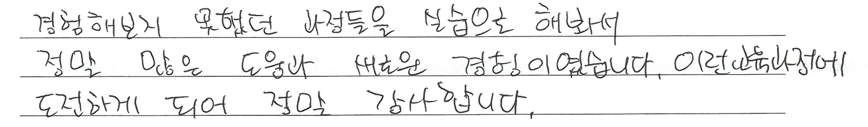 경험해보지 못했던 과정들을 실습으로 해봐서
정말 많은 도움과 새로운 경험이였습니다. 이런교육과정에
도전하게 되어 정말 감사합니다.